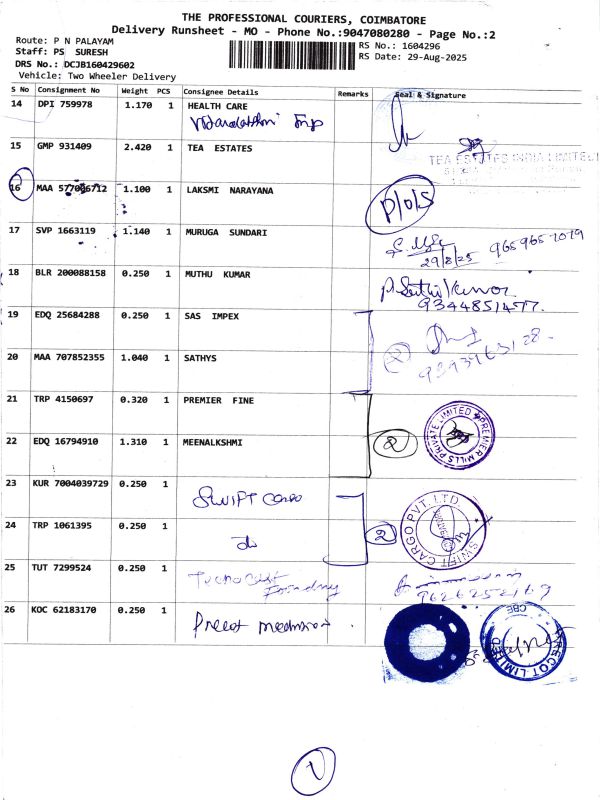 THE PROFESSIONAL COURIERS, COIMBATORE
Delivery Runsheet - MO - Phone No.:9047080280 - Page No.:2
Route: P N PALAYAM
Staff: PS SURESH
DRS No.: DCJB160429602
Vehicle: Two Wheeler Delivery
RS No.: 1604296
RS Date: 29-Aug-2025
S No Consignment No Weight PCS Consignee Details Remarks Seal & Signature
14 DPI 759978 1.170 1 HEALTH CARE
15 GMP 931409 2.420 1 TEA ESTATES
TEA ESTATES INDIA LIMITED
16 MAA 6712 1.100 1 LAKSMI NARAYANA
P/O/S
17 SVP 1663119 1.140 1 MURUGA SUNDARI
29/8/25
18 BLR 200088158 0.250 1 MUTHU KUMAR
9344851477.
19 EDQ 25684288 0.250 1 SAS IMPEX
20 MAA 707852355 1.040 1 SATHYS
2
21 TRP 4150697 0.320 1 PREMIER FINE
PREMIER MILLS PRIVATE LIMITED
22 EDQ 16794910 1.310 1 MEENALKSHMI
2
23 KUR 7004039729 0.250 1
SWIFT Cargo
SWIFT CARGO PVT. LTD.
24 TRP 1061395 0.250 1
do
2
25 TUT 7299524 0.250 1
26 KOC 62183170 0.250 1
Precot
PRECOT LIMITED
CBE
1